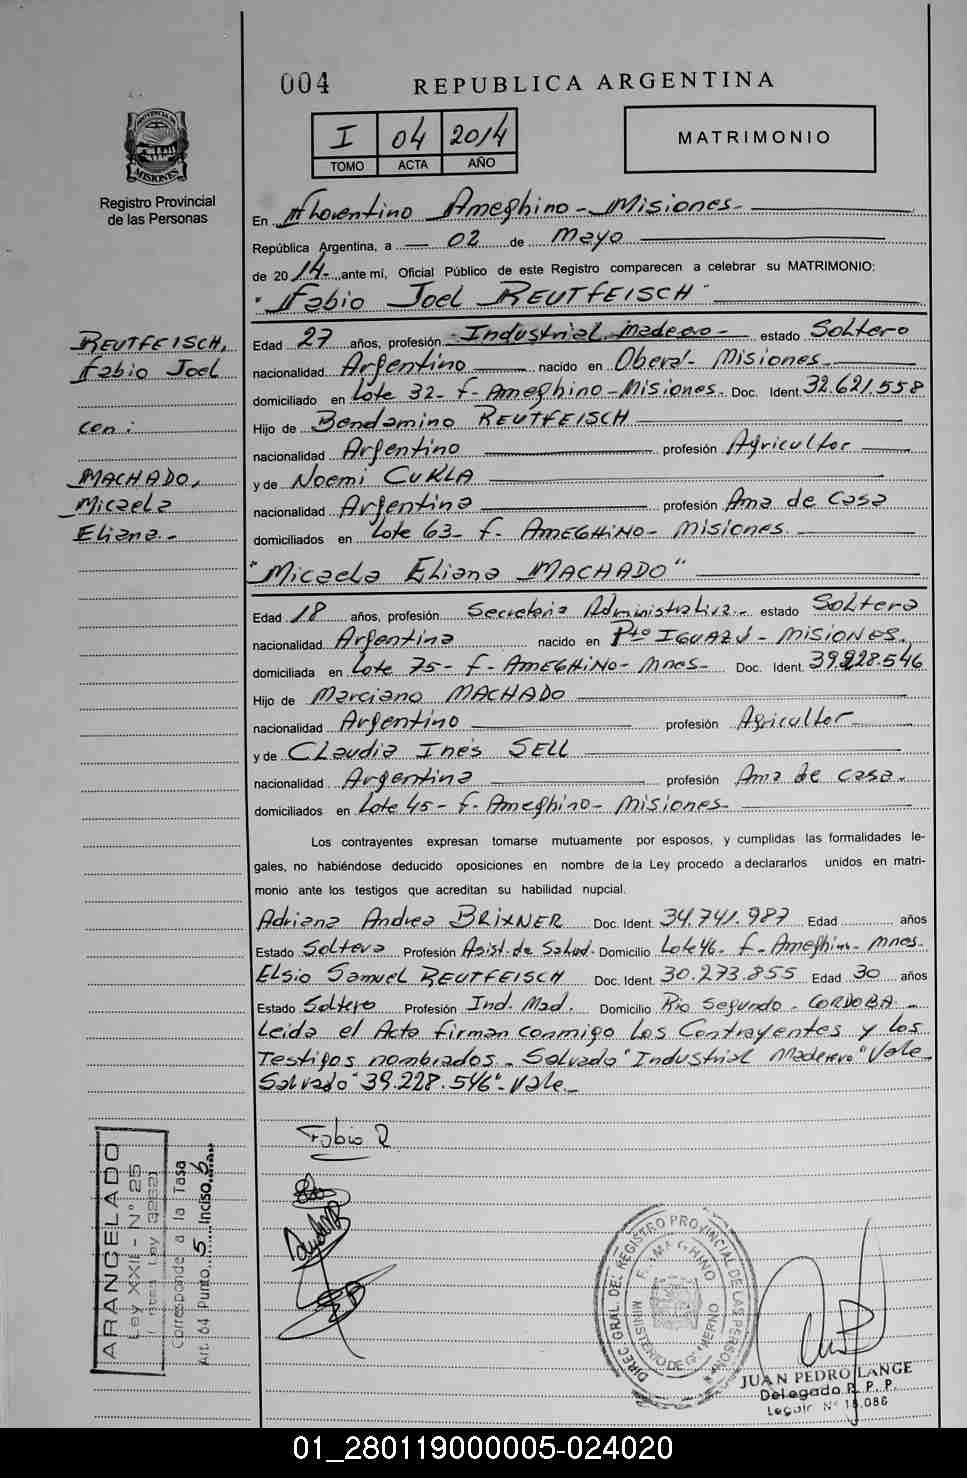 004 REPUBLICA ARGENTINA
I 04 2014
TOMO ACTA AÑO
MATRIMONIO
PROVINCIA DE MISIONES
Registro Provincial
de las Personas
En Florentino Ameghino - Misiones
República Argentina, a 02 de Mayo
de 2014 ante mí, Oficial Público de este Registro comparecen a celebrar su MATRIMONIO:
"Fabio Joel REUTFEISCH"
REUTFEISCH,
Fabio Joel
con:
MACHADO,
Micaela
Eliana.-
Edad 27 años, profesión Industrial maderero estado Soltero
nacionalidad Argentino nacido en Oberá - Misiones
domiciliado en Lote 32 - F. Ameghino - Misiones. Doc. Ident. 32.621.558
Hijo de Bendamino REUTFEISCH
nacionalidad Argentino profesión Agricultor
y de Noemi CUKLA
nacionalidad Argentina profesión Ama de casa
domiciliados en Lote 63 - F. AMEGHINO - Misiones.
"Micaela Eliana MACHADO"
Edad 18 años, profesión Secretaria Administrativa estado Soltera
nacionalidad Argentina nacido en Pto IGUAZÚ - MISIONES.
domiciliada en Lote 75 - F. AMEGHINO - Mnes - Doc. Ident. 39.228.546
Hijo de Marciano MACHADO
nacionalidad Argentino profesión Agricultor
y de Claudia Inés SELL
nacionalidad Argentina profesión Ama de casa.
domiciliados en Lote 45 - F. Ameghino - Misiones
Los contrayentes expresan tomarse mutuamente por esposos, y cumplidas las formalidades le-
gales, no habiéndose deducido oposiciones en nombre de la Ley procedo a declararlos unidos en matri-
monio ante los testigos que acreditan su habilidad nupcial.
Adriana Andrea BRIXNER Doc. Ident. 34.741.987 Edad años
Estado Soltera Profesión Asist. de Salud - Domicilio Lote 46 - F. Ameghino - Mnes.
Elsio Samuel REUTFEISCH Doc. Ident. 30.273.855 Edad 30 años
Estado Soltero Profesión Ind. Mad. Domicilio Rio Segundo - CORDOBA
Leida el Acta firman conmigo los Contrayentes y los
Testigos nombrados - Salvado "Industrial Maderero" Vale
Salvado "39.228.546" - Vale
Fabio R
ARANCELADO
Ley XXII - N° 25
Corresponde a la Tasa
Art. 64 Punto 5 Inciso 6
DIREC. GRAL. DEL REGISTRO PROVINCIAL DE LAS PERSONAS
MINISTERIO DE GOBIERNO
JUAN PEDRO LANGE
Delegado R. P. P.
Legajo N° 18.086
01_280119000005-024020